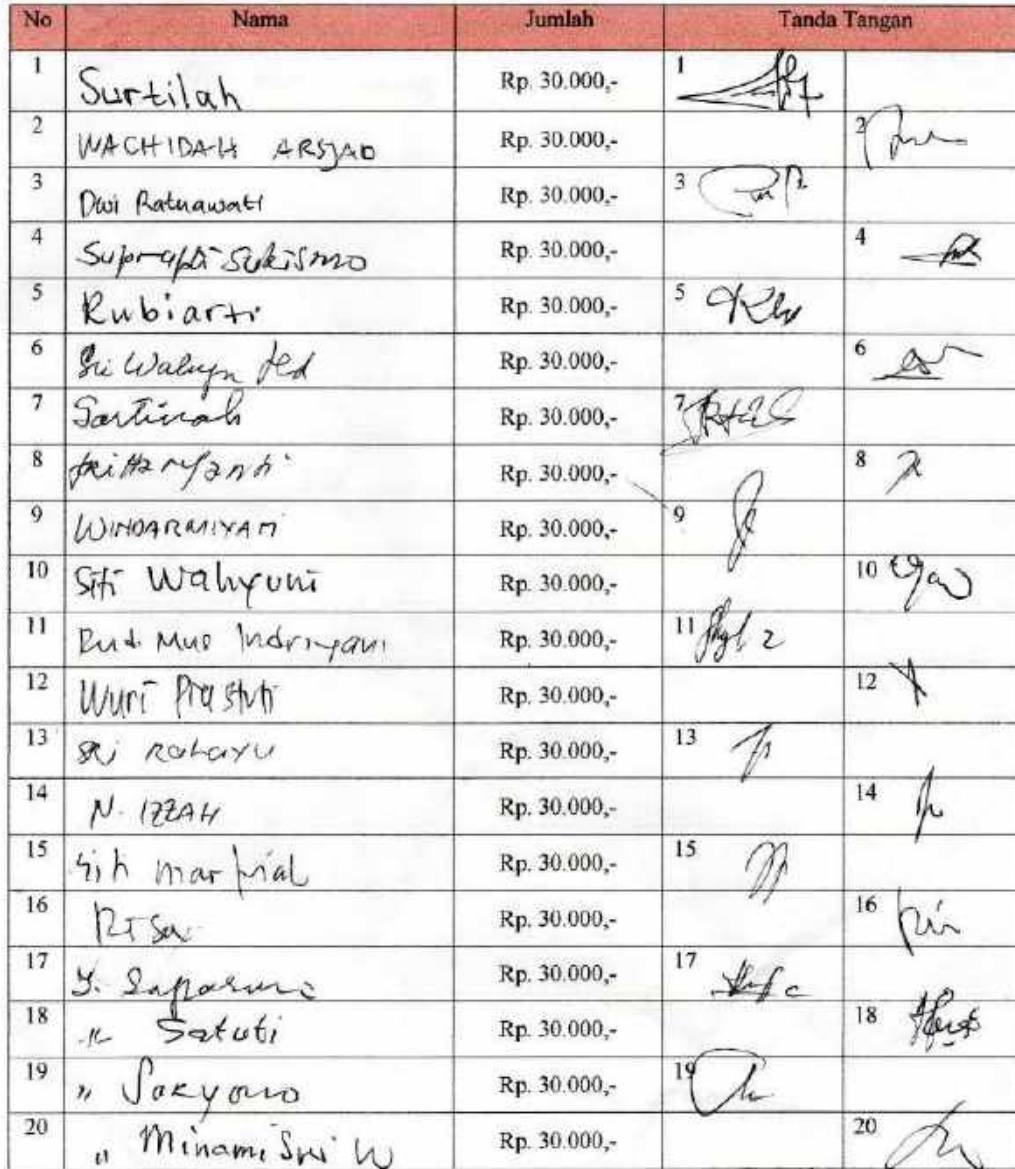 No Nama Jumlah Tanda Tangan
1 Surtilah Rp. 30.000,- 1
2 WACHIDAH ARSJAD Rp. 30.000,- 2
3 Dwi Ratnawati Rp. 30.000,- 3
4 Suprapti Sukismo Rp. 30.000,- 4
5 Rubiarti Rp. 30.000,- 5
6 Sri Rp. 30.000,- 6
7 Sartinah Rp. 30.000,- 7
8 Rp. 30.000,- 8
9 WINDARMIYATI Rp. 30.000,- 9
10 Siti Wahyuni Rp. 30.000,- 10
11 Indriyani Rp. 30.000,- 11
12 Wuri Prastuti Rp. 30.000,- 12
13 Sri Rahayu Rp. 30.000,- 13
14 N. IZZAH Rp. 30.000,- 14
15 Siti Rp. 30.000,- 15
16 Rp. 30.000,- 16
17 Rp. 30.000,- 17
18 " Satuti Rp. 30.000,- 18
19 " Rp. 30.000,- 19
20 " Minami Sri W Rp. 30.000,- 20